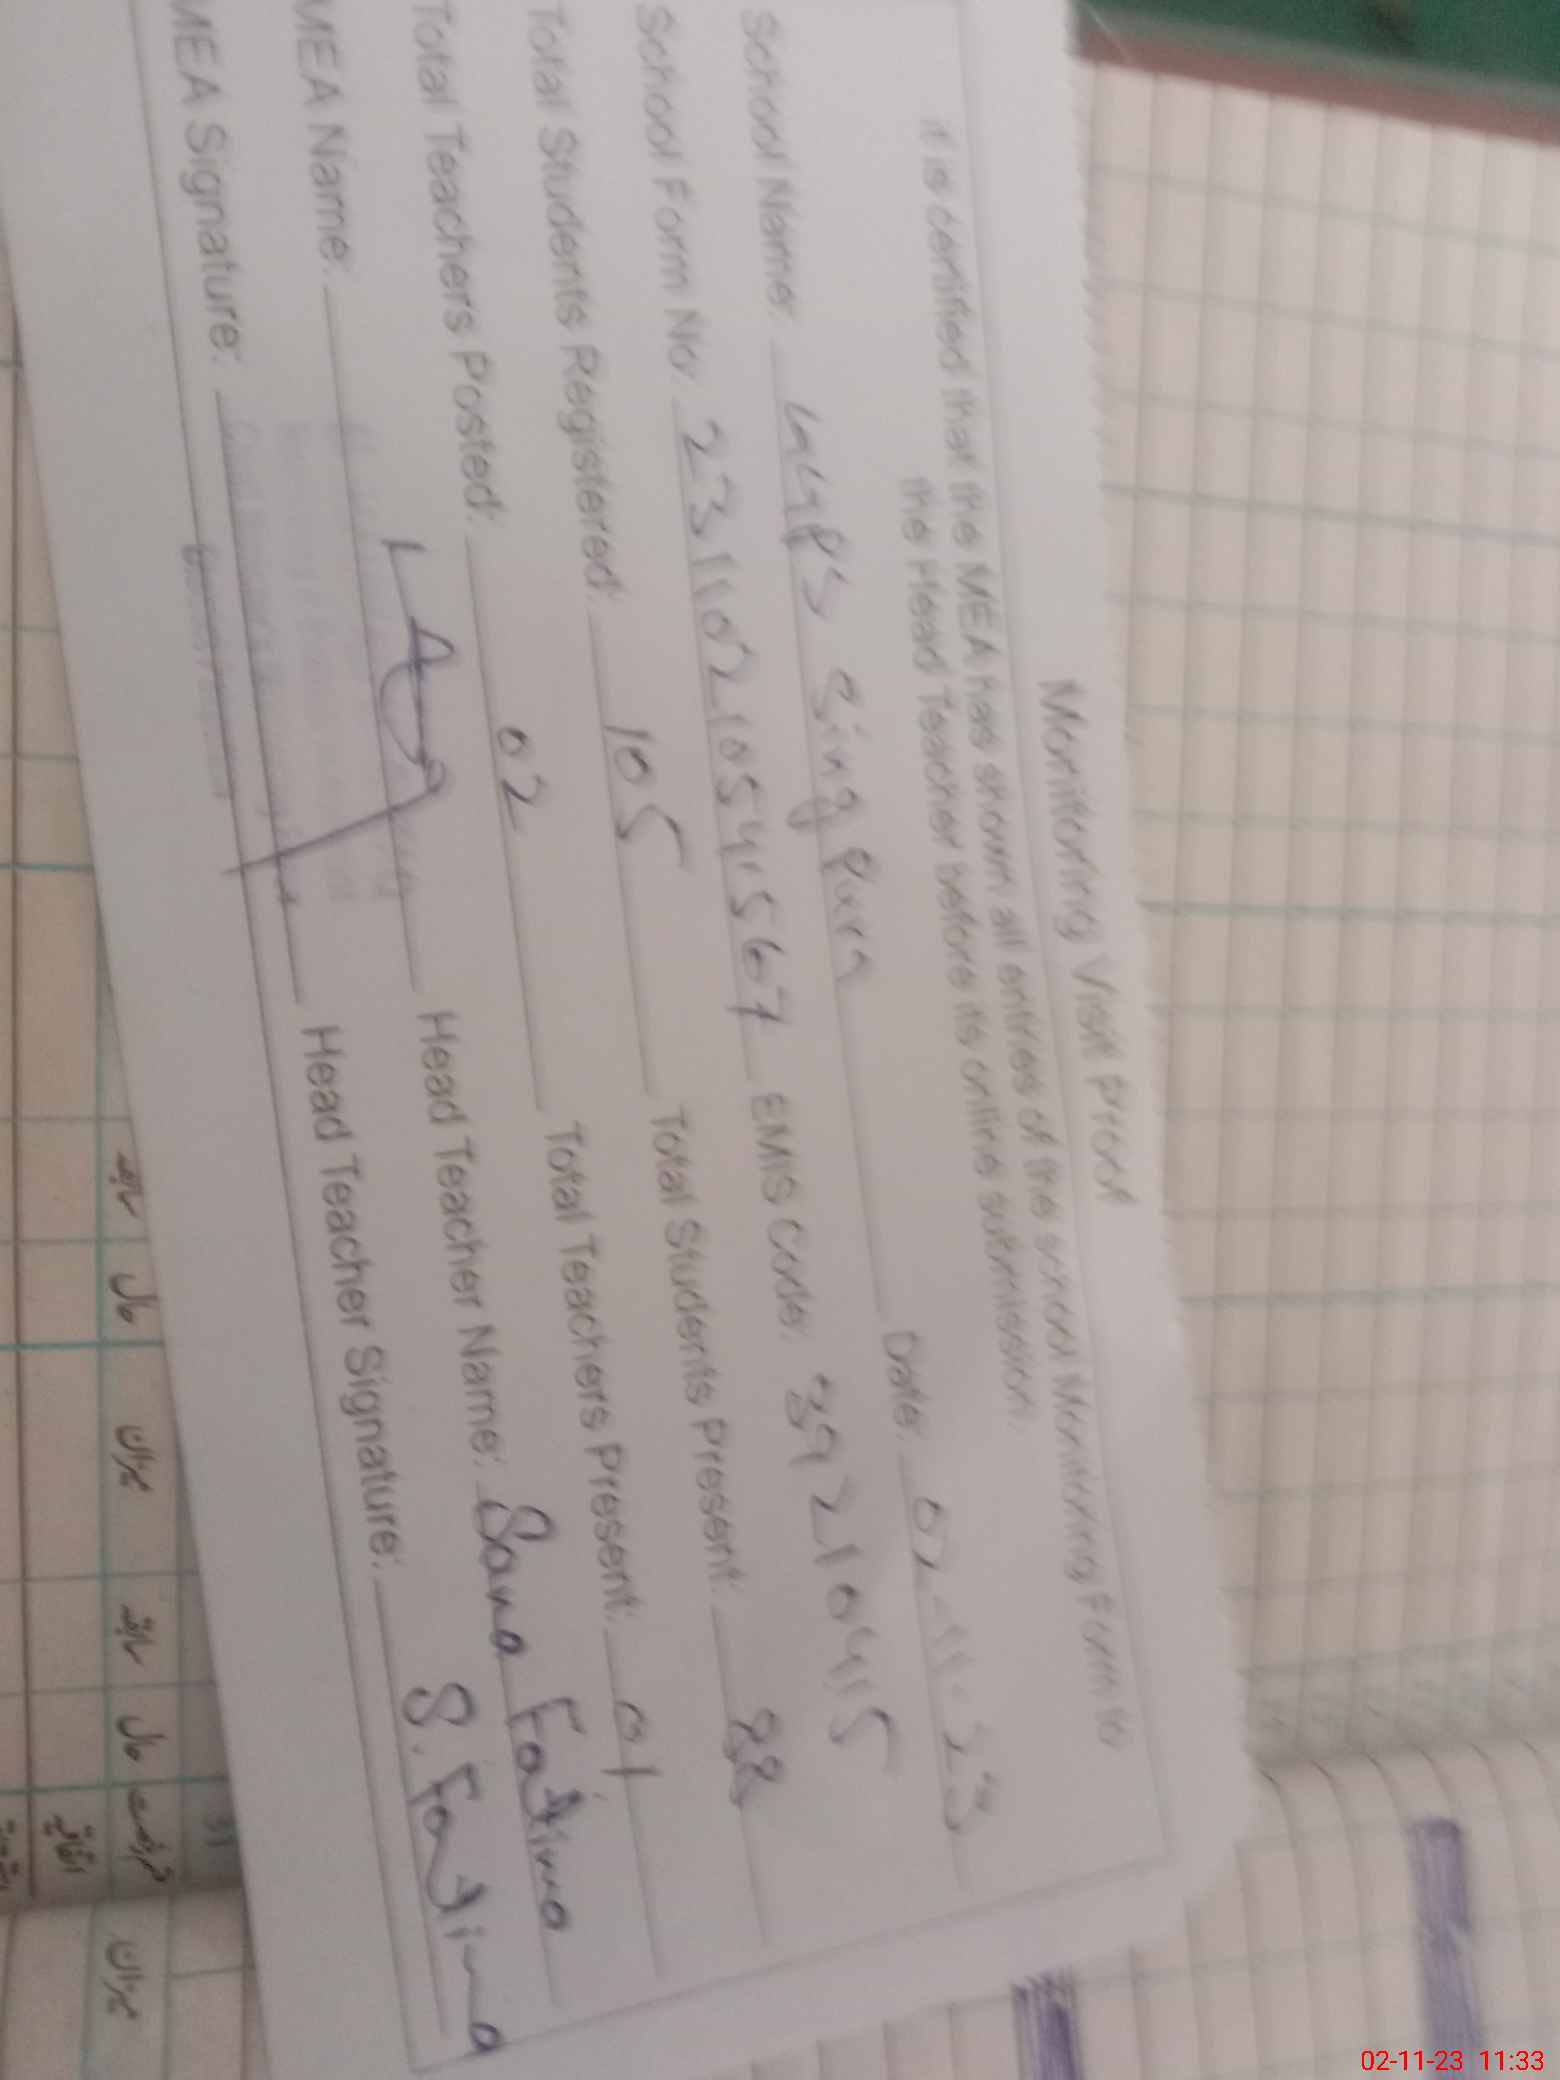 Monitoring Visit Proof
it is certified that the MEA has shown all entries of the school Monitoring Form to
the Head Teacher before its online submission.
School Name: GGPS Singpura Date: 02-11-23
School Form No: 23110210541567 EMIS Code: 39210415
Total Students Registered: 105 Total Students Present: 88
Total Teachers Posted: 02 Total Teachers Present: 01
MEA Name: Head Teacher Name: Sana Fatima
MEA Signature: Head Teacher Signature: S. Fatima
سابقہ حال میزان سابقہ حال میزان
02-11-23 11:33